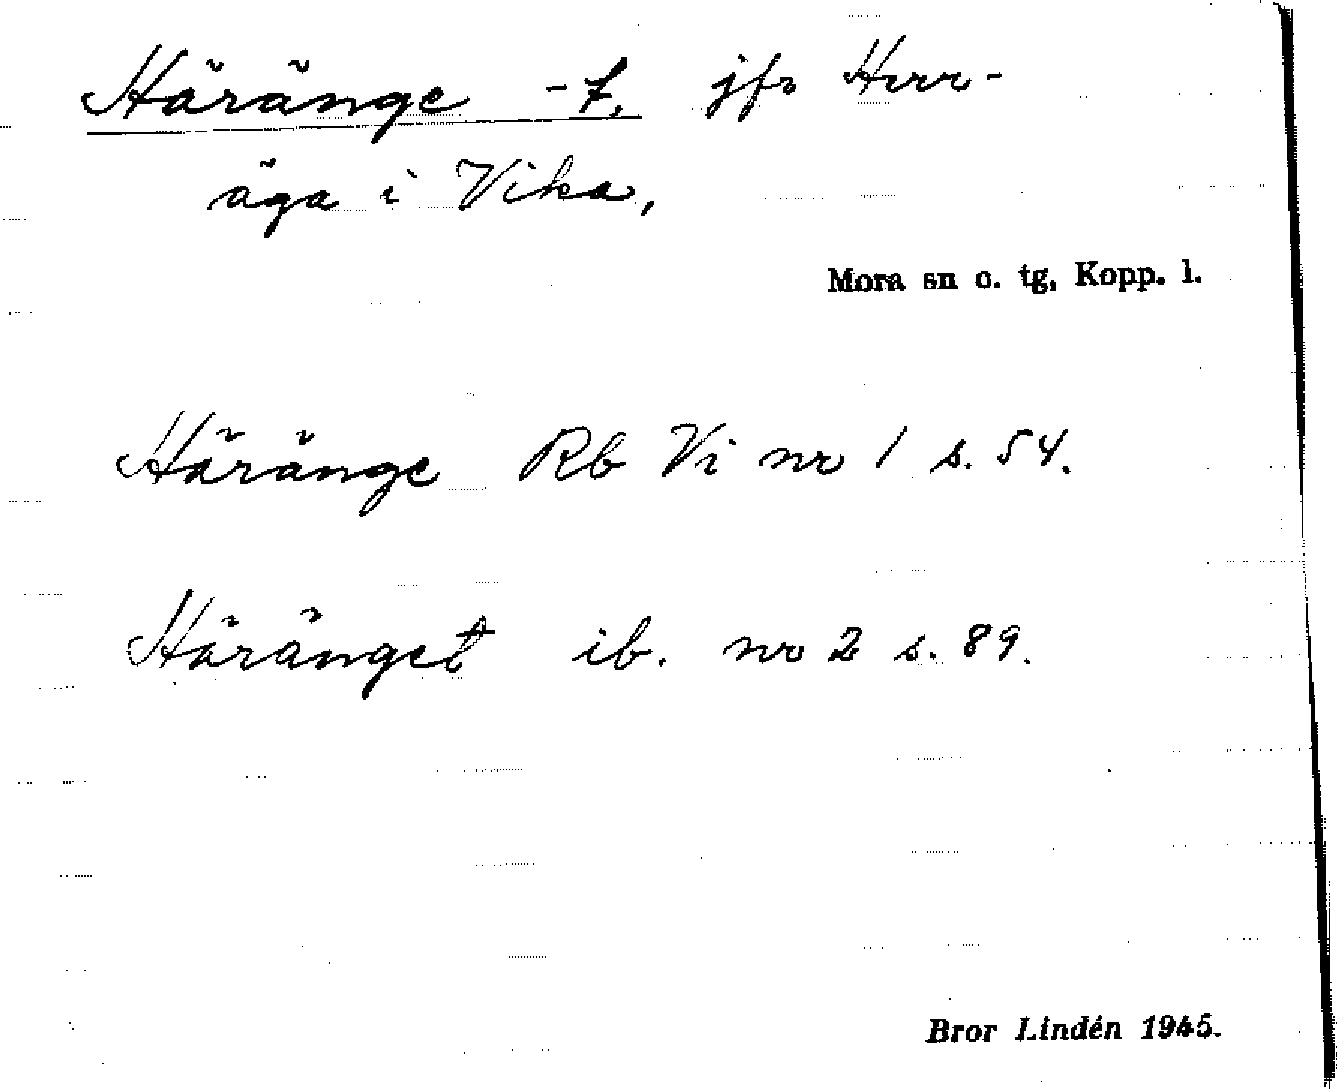 Häränge -t, jfr Herr-
äga i Vika,
Mora sn o. tg, Kopp. l.
Häränge Rb Vi nr 1 s. 54.
Häränget ib. nr 2 s. 89.
Bror Lindén 1945.